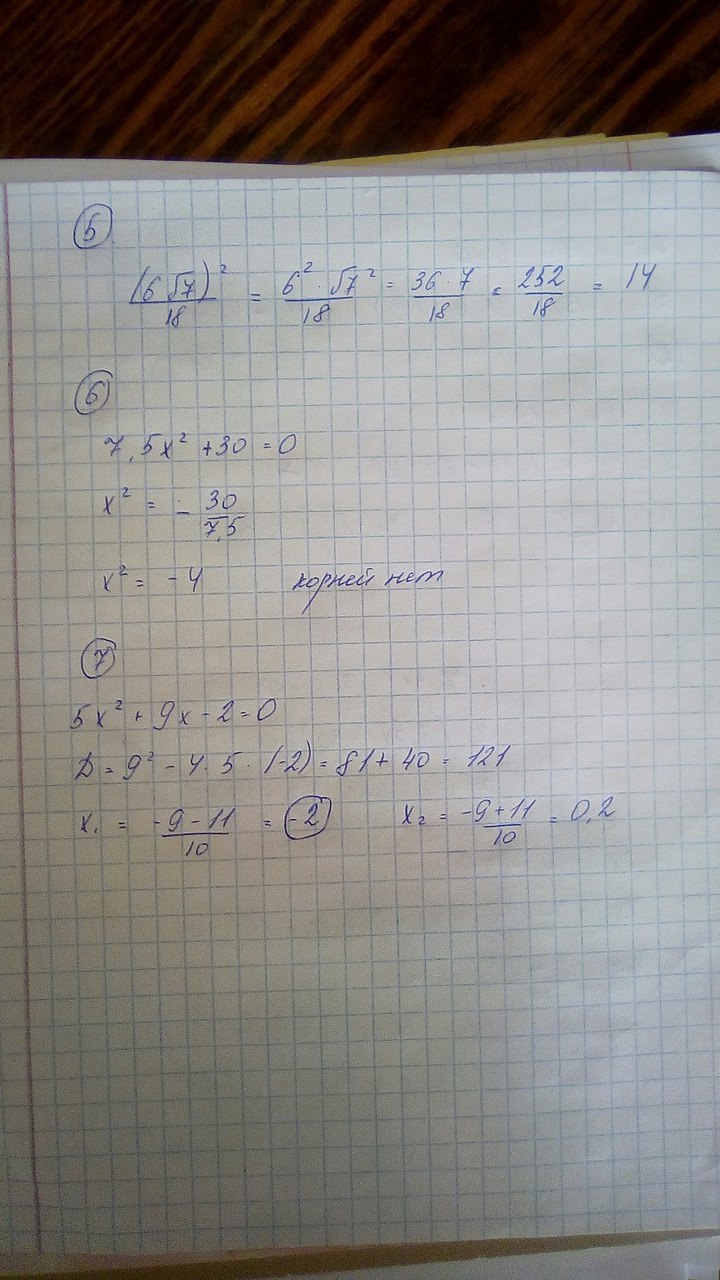 5
(6√7)²/18 = 6² · √7²/18 = 36 · 7/18 = 252/18 = 14
6
7,5x² + 30 = 0
x² = - 30/7,5
x² = - 4 корней нет
7
5x² + 9x - 2 = 0
D = 9² - 4 · 5 · (-2) = 81 + 40 = 121
x₁ = -9 - 11/10 = -2 x₂ = -9 + 11/10 = 0,2